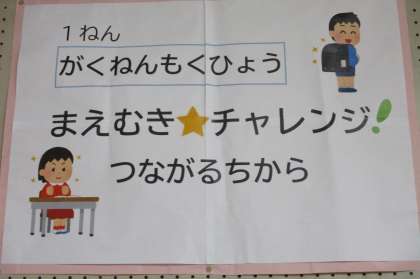 1ねん
がくねんもくひょう
まえむき★チャレンジ!
つながるちから